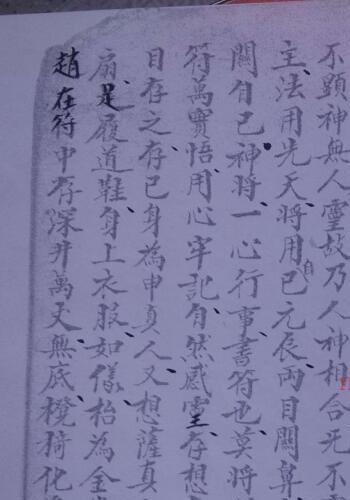 不顯神無人靈故乃人神相合元不靈
主法用先天將用自己元辰兩目關鼻
關自己神將一心行事書符也莫將
符萬寶悟用心牢記自然感靈存想
目存之存己身為申真人又想薩真
扇是履道鞋身上衣服如儀枱為金
趙在符中存深井萬丈無底櫈猗化